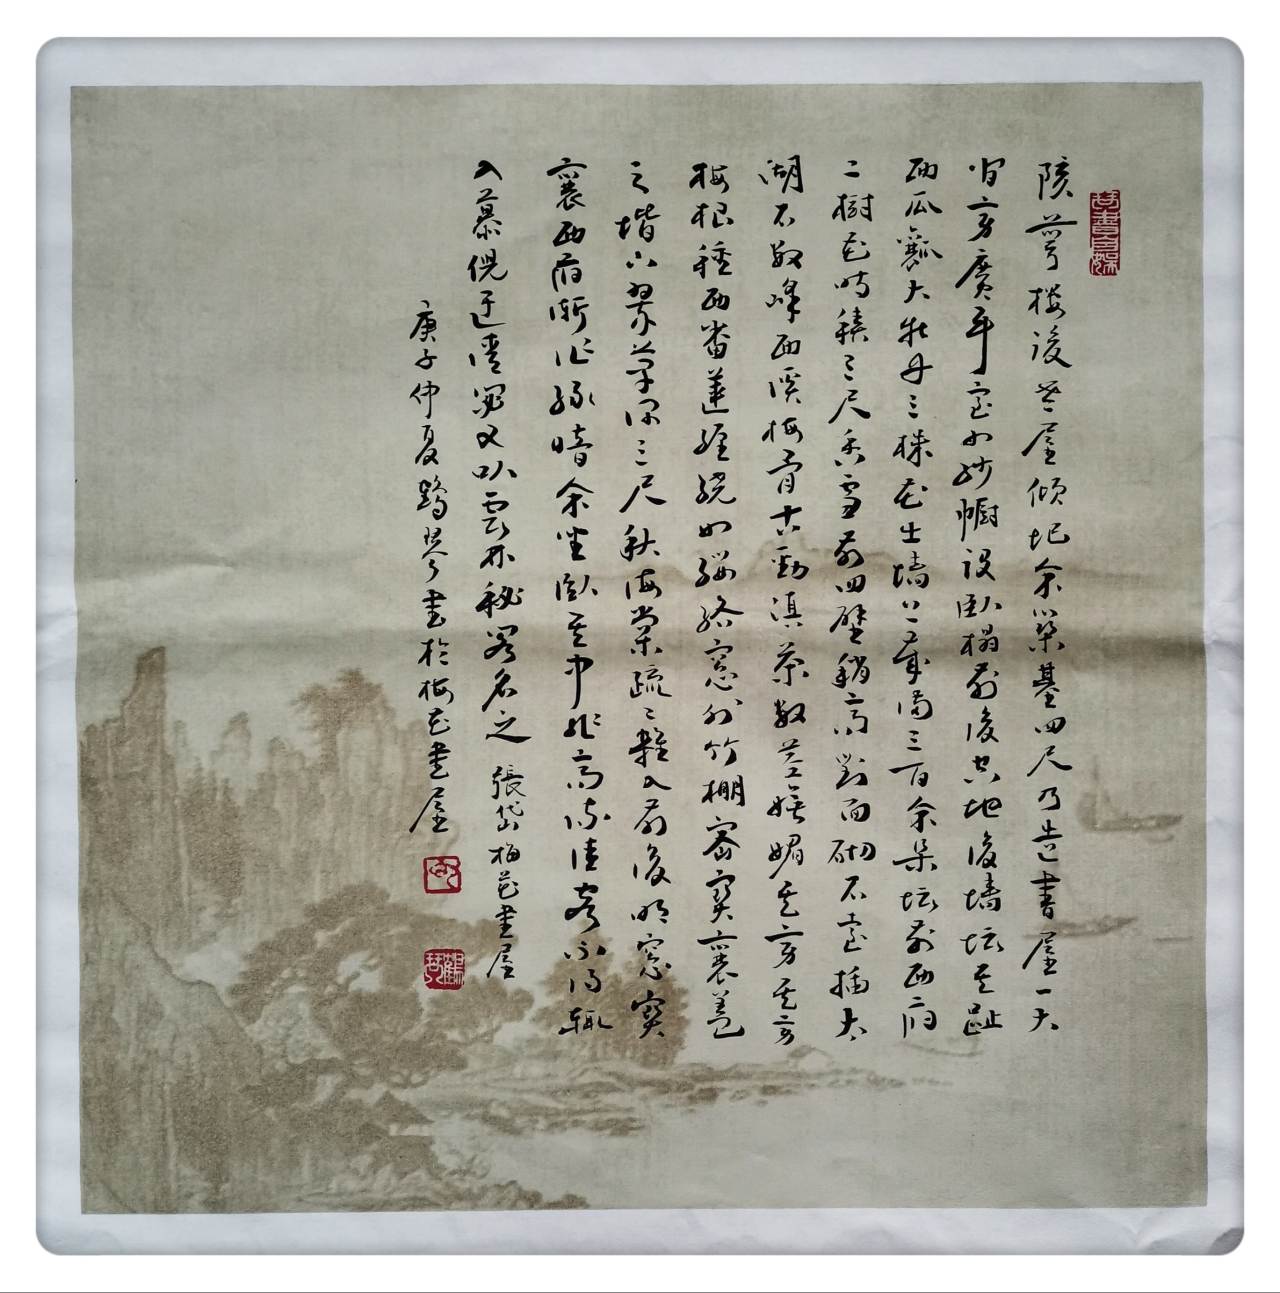 琴書自娱
陔萼楼後老屋傾圮余築基四尺乃造書屋一大
间旁廣耳室如紗幮設臥榻前後空地後墙坛其趾
西瓜瓤大牡丹三株花出墙上歲满三百余朵坛前西府
二樹花时積三尺香雪前四壁稍高對面砌石臺插太
湖石数峰西溪梅骨古勁滇茶数莖嫵媚其旁其旁
梅根種西番蓮纏繞如缨絡窓外竹棚密寳襄盖
之堦下翠草深三尺秋海棠疏々雜入前後明窓寳
襄西府漸作綠暗余坐臥其中非高流佳客不得輒
入慕倪迂清閟又以雲林秘閣名之 張岱梅花書屋
庚子仲夏鶴琴書於梅花書屋
鶴琴